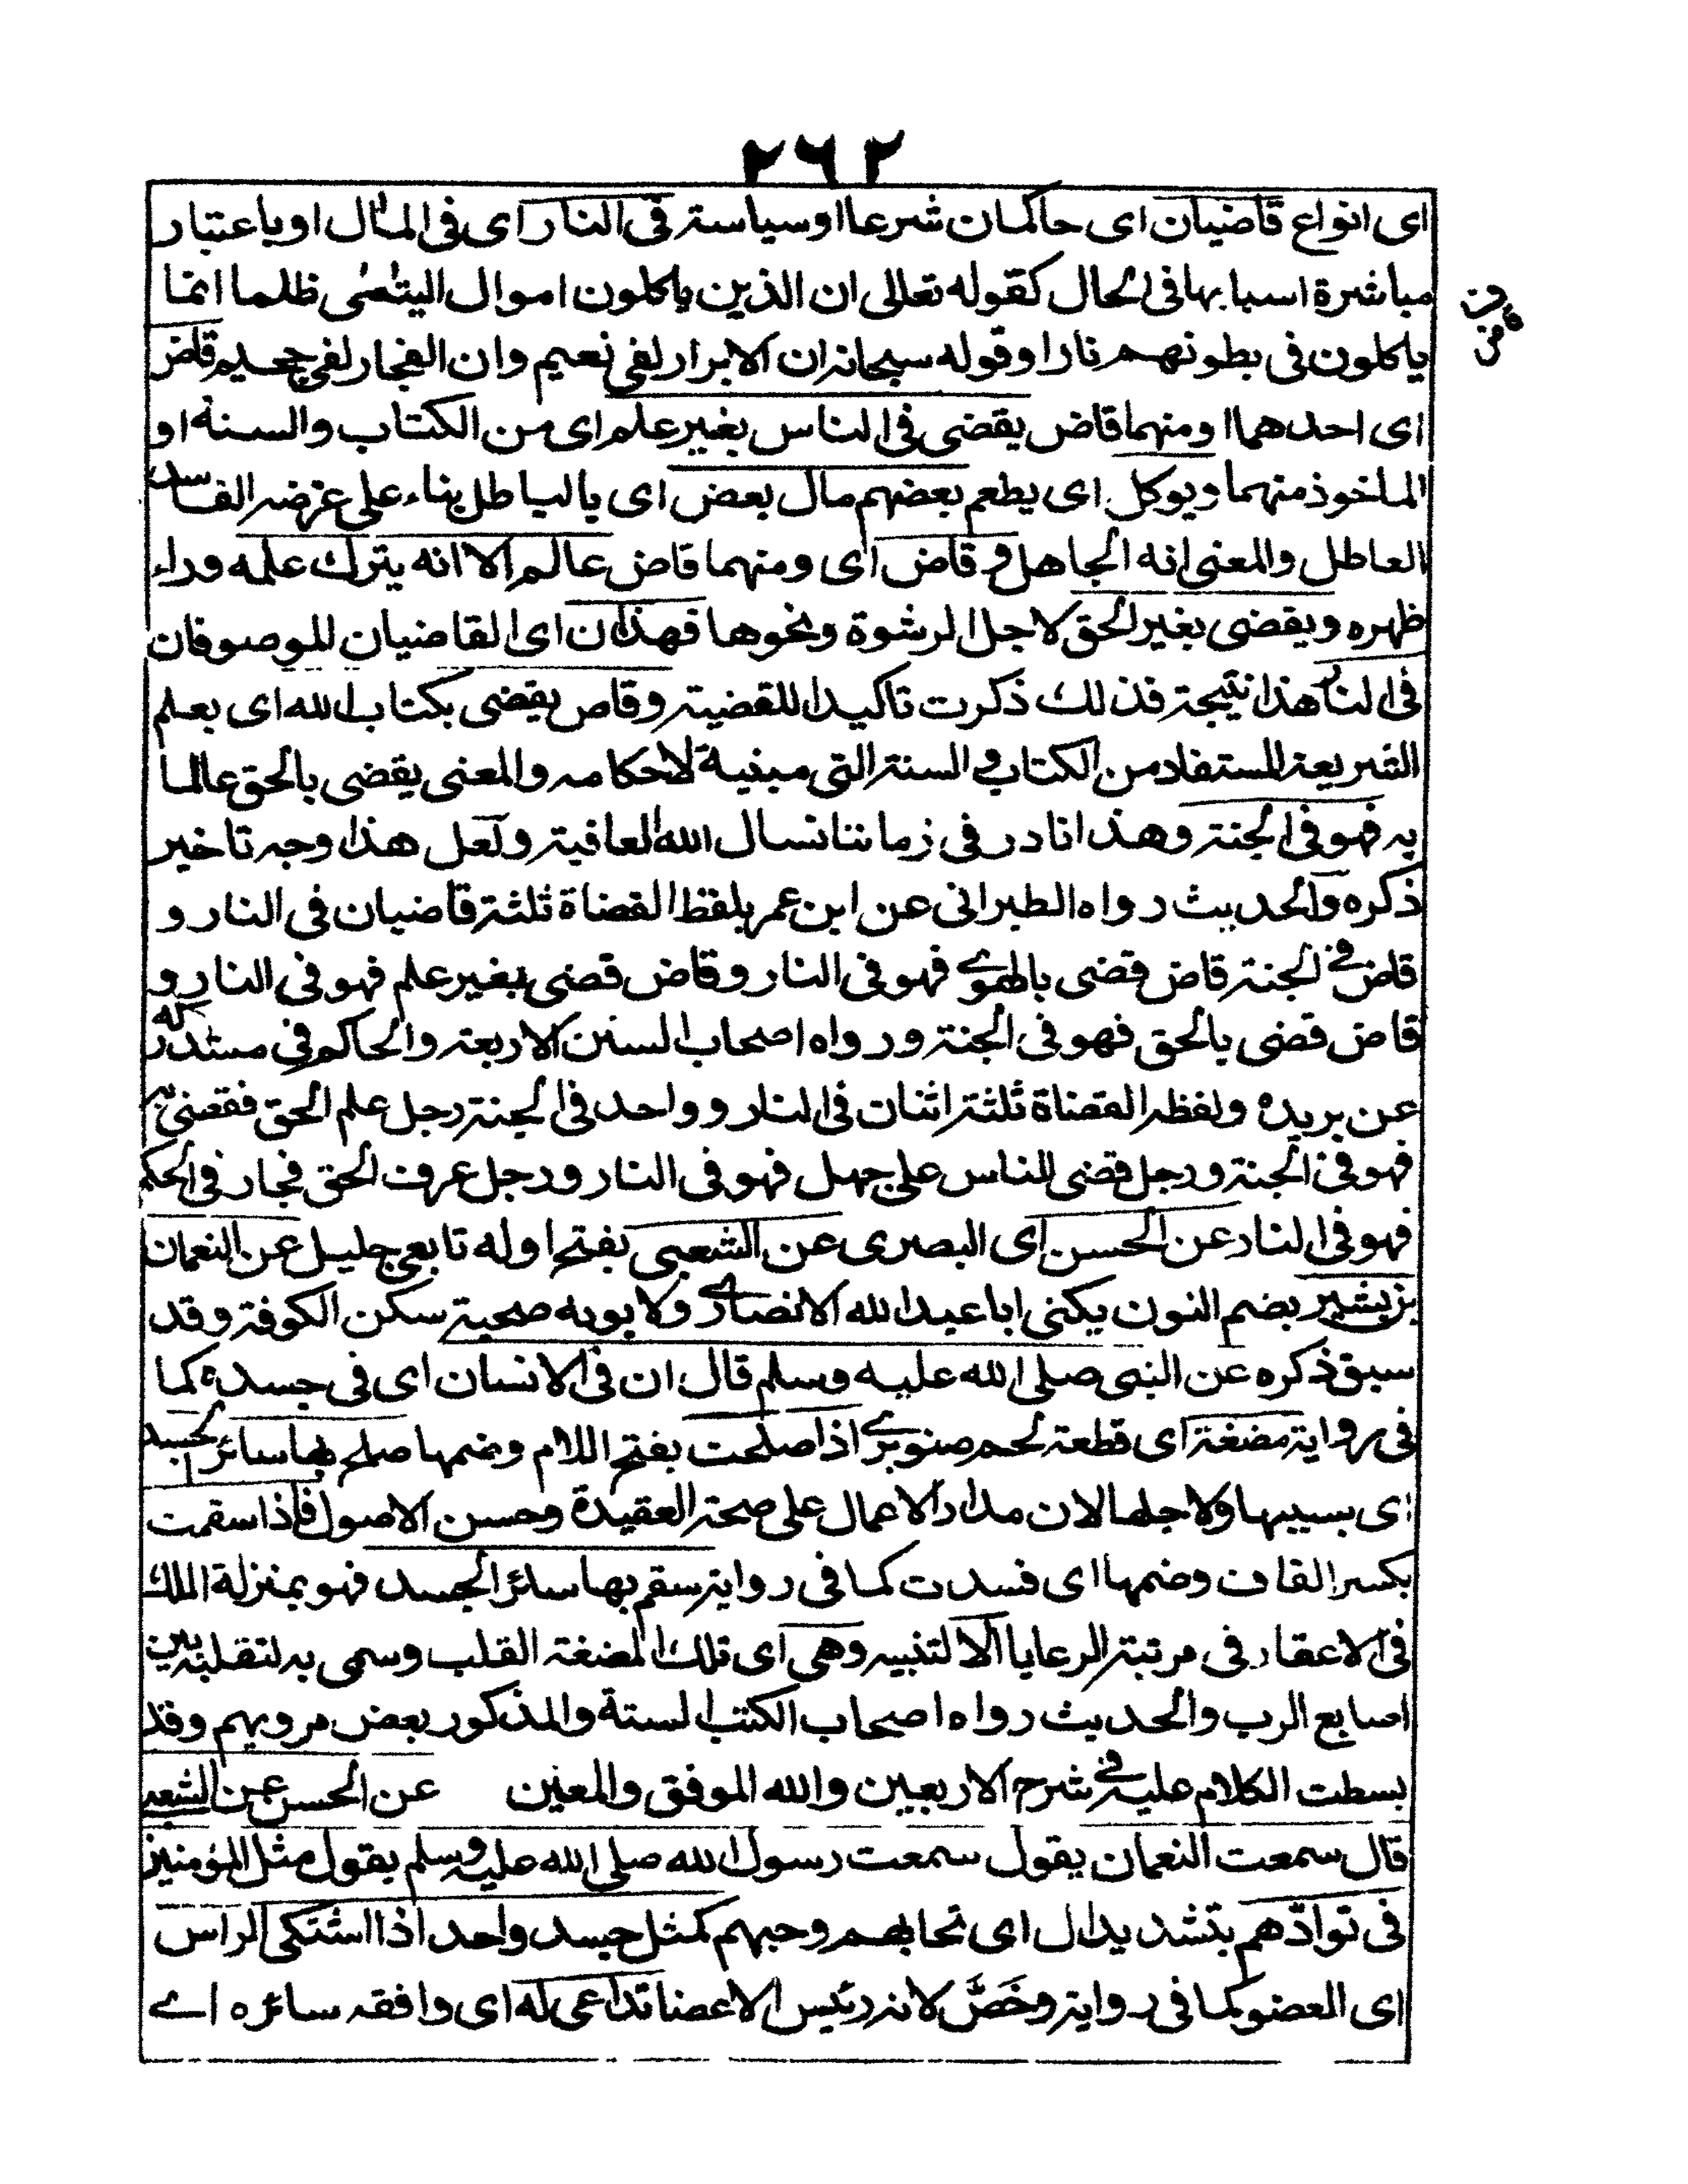 ٢٦٢
اى انواع قاضيان اى حاكمان شرعا او سياسة فى النار اى فى المآل او باعتبار
مباشرة اسبابها فى الحال كقوله تعالى ان الذين ياكلون اموال اليتٰمٰى ظلما انما
ياكلون فى بطونهم نارا وقوله سبحانه ان الابرار لفى نعيم وان الفجار لفى جحيم قاض
اى احدهما او منهما قاض يقضى فى الناس بغير علم اى من الكتاب والسنة او
الماخوذ منهما ويوكل اى يطعم بعضهم مال بعض اى بالباطل بناء على غرضه الفاسد
العاطل والمعنى انه الجاهل وقاض اى ومنهما قاض عالم الا انه يترك علمه وراء
ظهره ويقضى بغير الحق لاجل الرشوة ونحوها فهذان اى القاضيان للموصوفان
فى النار هذا نتيجة فذلك ذكرت تاكيدا للقضية وقاض يقضى بكتاب الله اى بعلم
الشريعة المستفاد من الكتاب و السنة التى مبنية لاحكامه والمعنى يقضى بالحق عالما
به فهو فى الجنة وهذا نادر فى زماننا نسال الله العافية ولعل هذا وجه تاخير
ذكره والحديث رواه الطبرانى عن ابن عمر بلفظ القضاة ثلثة قاضيان فى النار و
قاض فے الجنة قاض قضى بالهوے فهو فى النار وقاض قضى بغير علم فهو فى النار و
قاض قضى بالحق فهو فى الجنة ورواه اصحاب السنن الاربعة والحاكم فى مستدركه
عن بريده ولفظه القضاة ثلثة اثنان فى النار وواحد فى الجنة رجل علم الحق فقضى به
فهو فى الجنة ورجل قضى للناس على جهل فهو فى النار ورجل عرف الحق فجار فى الحكم
فهو فى النار عن الحسن اى البصرى عن الشعبى بفتح اوله تابعى جليل عن النعمان
بن بشير بضم النون يكنى ابا عبد الله الانصارے ولابويه صحبة سكن الكوفة وقد
سبق ذكره عن النبى صلى الله عليه وسلم قال ان فى الانسان اى فى جسده كما
فى رواية مضغة اى قطعة لحم صنوبرے اذا صلحت بفتح اللام وضمها صلح بها سائر الجسد
اى بسببها ولاجلها لان مدار الاعمال على صحة العقيدة وحسن الاصول فاذا سقمت
بكسر القاف وضمها اى فسدت كما فى رواية سقم بها سائر الجسد فهو بمنزلة الملك
فى الاعقار فى مرتبة الرعايا الا لتنبيه وهى اى تلك المضغة القلب وسمى به لتقلبه بين
اصابع الرب والحديث رواه اصحاب الكتب الستة والمذكور بعض مرويهم وقد
بسطت الكلام عليه فے شرح الاربعين والله الموفق والمعين عن الحسن عن الشعبى
قال سمعت النعمان يقول سمعت رسول الله صلى الله عليه وسلم يقول مثل المؤمنين
فى توادّهم بتشديد ال اى تحابهم وحبهم كمثل جسد واحد اذا اشتكى الراس
اى العضو كما فى رواية وخَصَّ لانه رئيس الاعضا تداعى له اى وافقه سائره اے
قاض